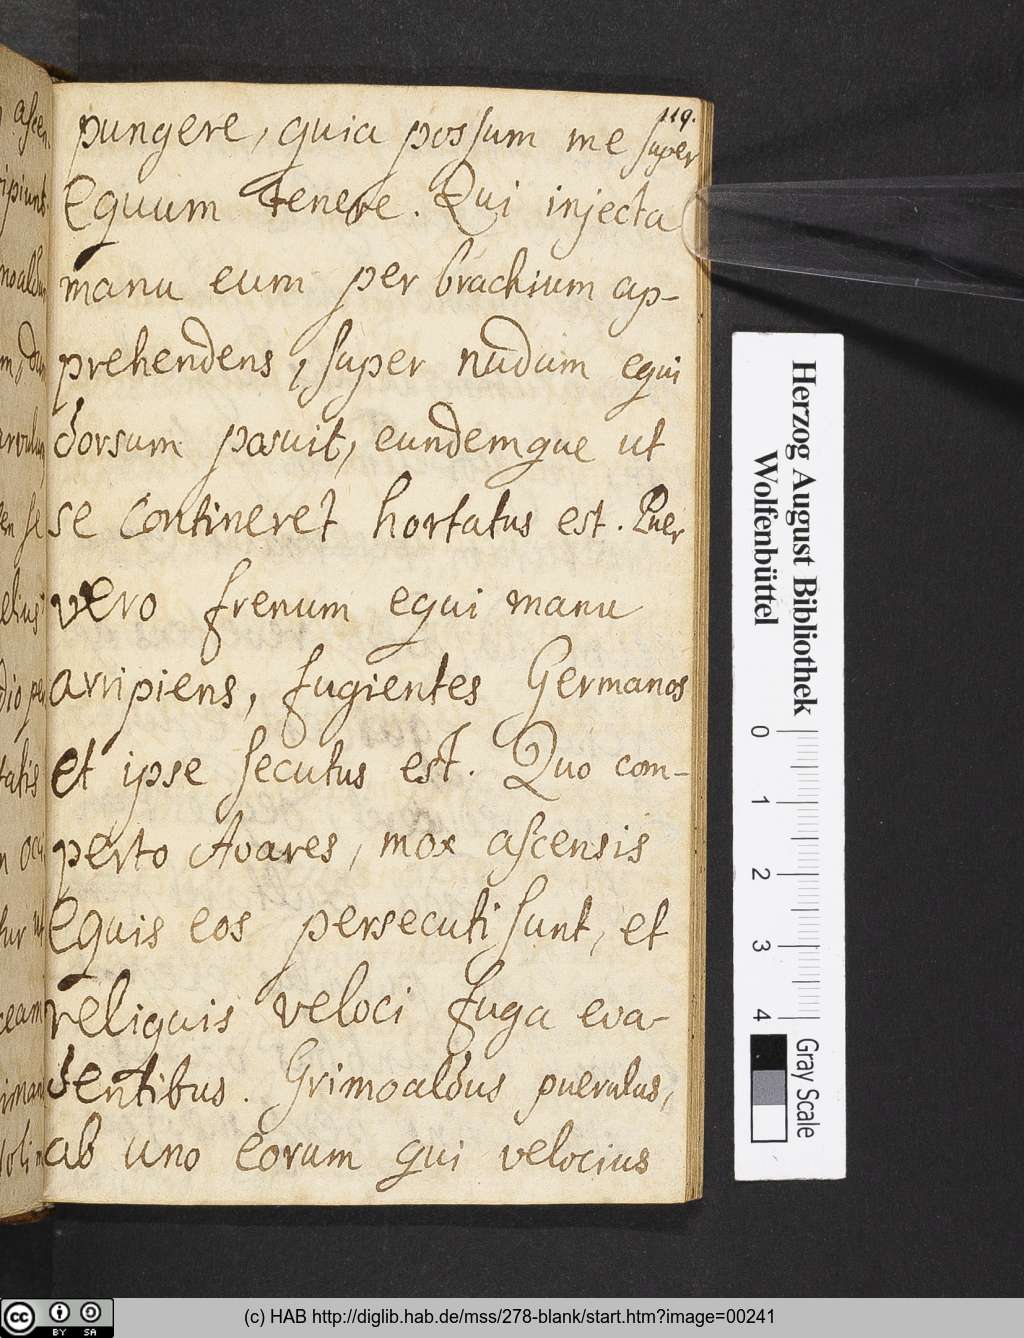 119.
pungere, quia possum me super
Equum tenere. Qui injecta
manu eum per brachium ap-
prehendens, super nudum equi
dorsum posuit, eundemque ut
se contineret hortatus est. Puer
vero frenum equi manu
arripiens, fugientes Germanos
et ipse secutus est. Quo com-
perto Avares, mox ascensis
Equis eos persecuti sunt, et
reliquis veloci fuga eva-
dentibus. Grimoaldus puerulus,
ab uno eorum qui velocius
Herzog August Bibliothek
Wolfenbüttel
0 1 2 3 4
Gray Scale
cc BY SA
(c) HAB http://diglib.hab.de/mss/278-blank/start.htm?image=00241